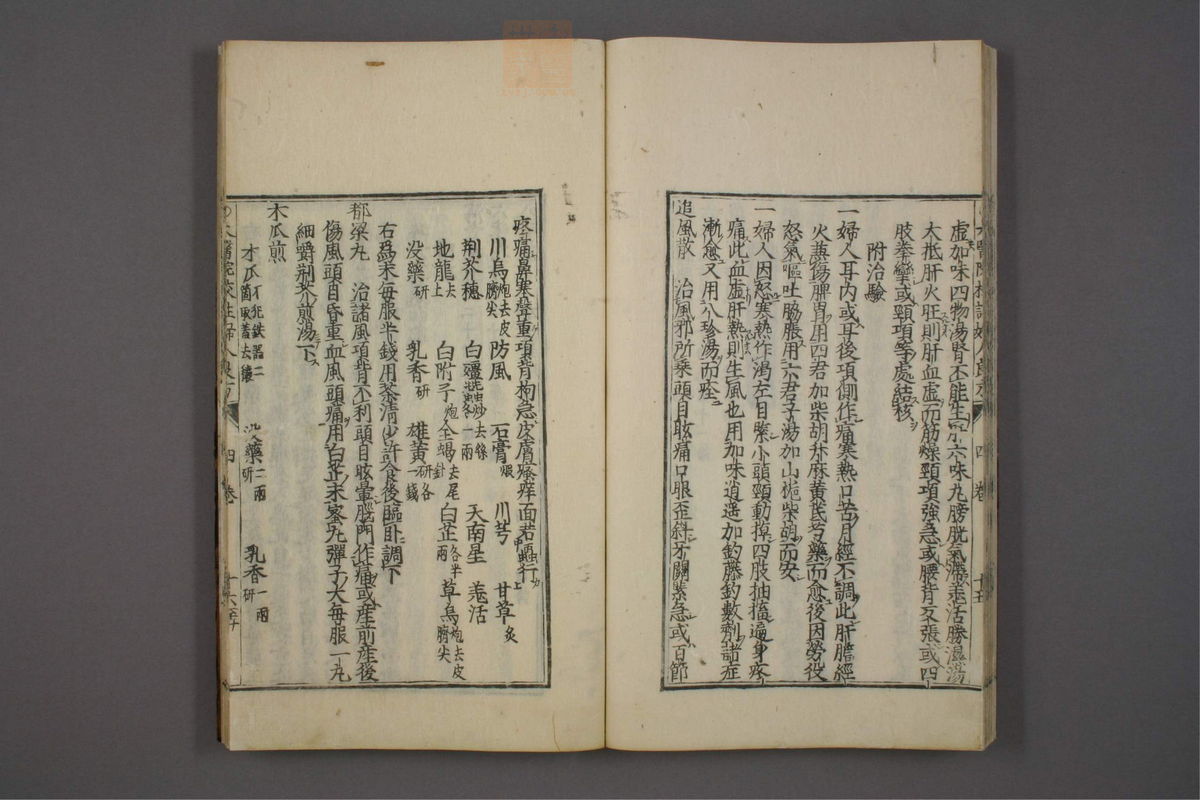 虚加味四物湯腎不能生肝六味丸膀胱氣滯羗活勝濕湯
大抵肝火旺則肝血虚而筋燥頸項強急或腰背反張或四
肢拳攣或頸項等處結核
附治驗
一婦人耳内或耳後項側作痛寒熱口苦月經不調此肝膽經
火兼傷脾胃用四君加柴胡升麻黄芪芍藥而愈後因勞役
怒氣嘔吐脇脹用六君子湯加山梔柴胡而安
一婦人因怒寒熱作渴左目緊小頭頸動掉四肢抽搐遍身疼
痛此血虚肝熱則生風也用加味逍遥加釣藤鈎數劑諸症
漸愈又用八珍湯而痊
追風散 治風邪所乗頭目眩痛口眼歪斜牙關緊急或百節
四卷
疼痛鼻寒聲重項背拘急皮膚瘙痒面若蟲行
川烏炮去皮臍尖 防風 石膏煆 川芎 甘草炙
荆芥穗 白殭蠶炒去絲各一兩 天南星 羗活
地龍去土 白附子炮 全蝎去尾針 白芷各半兩 草烏炮去皮臍尖
没藥研 乳香研 雄黄研各一錢
右爲末毎服半錢用茶清少許食後臨卧調下
都梁丸 治諸風項背不利頭目眩暈腦門作痛或産前産後
傷風頭目昏重血風頭痛用白芷末蜜丸彈子大毎服一丸
細嚼荆芥煎湯下
木瓜煎
木瓜不犯鐵器二箇取蓋去穰 没藥二兩研 乳香一兩研
太醫院校註婦人良方
四卷